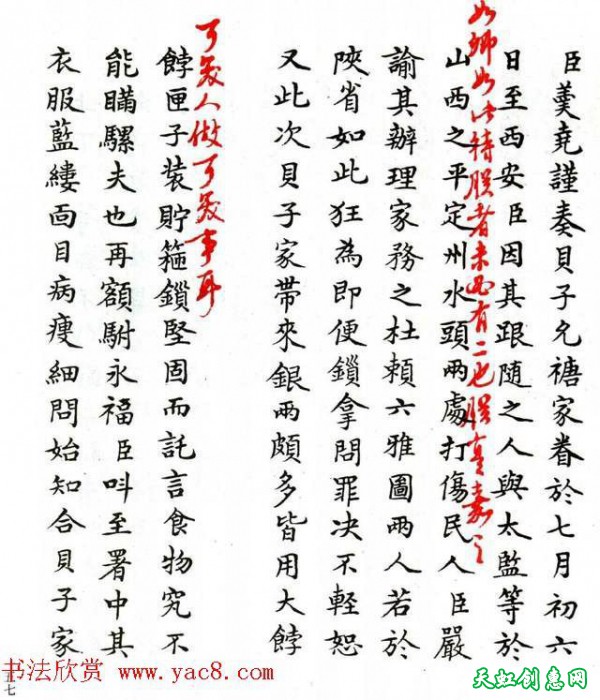 臣羹堯謹奏貝子允禟家眷於七月初六
日至西安臣因其跟隨之人與太監等於
如卿如此待朕者未必有二也朕
嘉之
山西之平定州水頭兩處打傷民人臣嚴
諭其辦理家務之杜賴六雅圖兩人若於
陝省如此狂為即便鎖拿問罪决不輕恕
又此次貝子家帶來銀兩頗多皆用大餑
可笑人做可笑事耳
餑匣子裝貯箍鎖堅固而託言食物究不
能瞞騾夫也再額駙永福臣呌至署中其
衣服藍縷面目病瘦細問始知合貝子家
五七
书法欣赏 www.yac8.com
天虹创意网